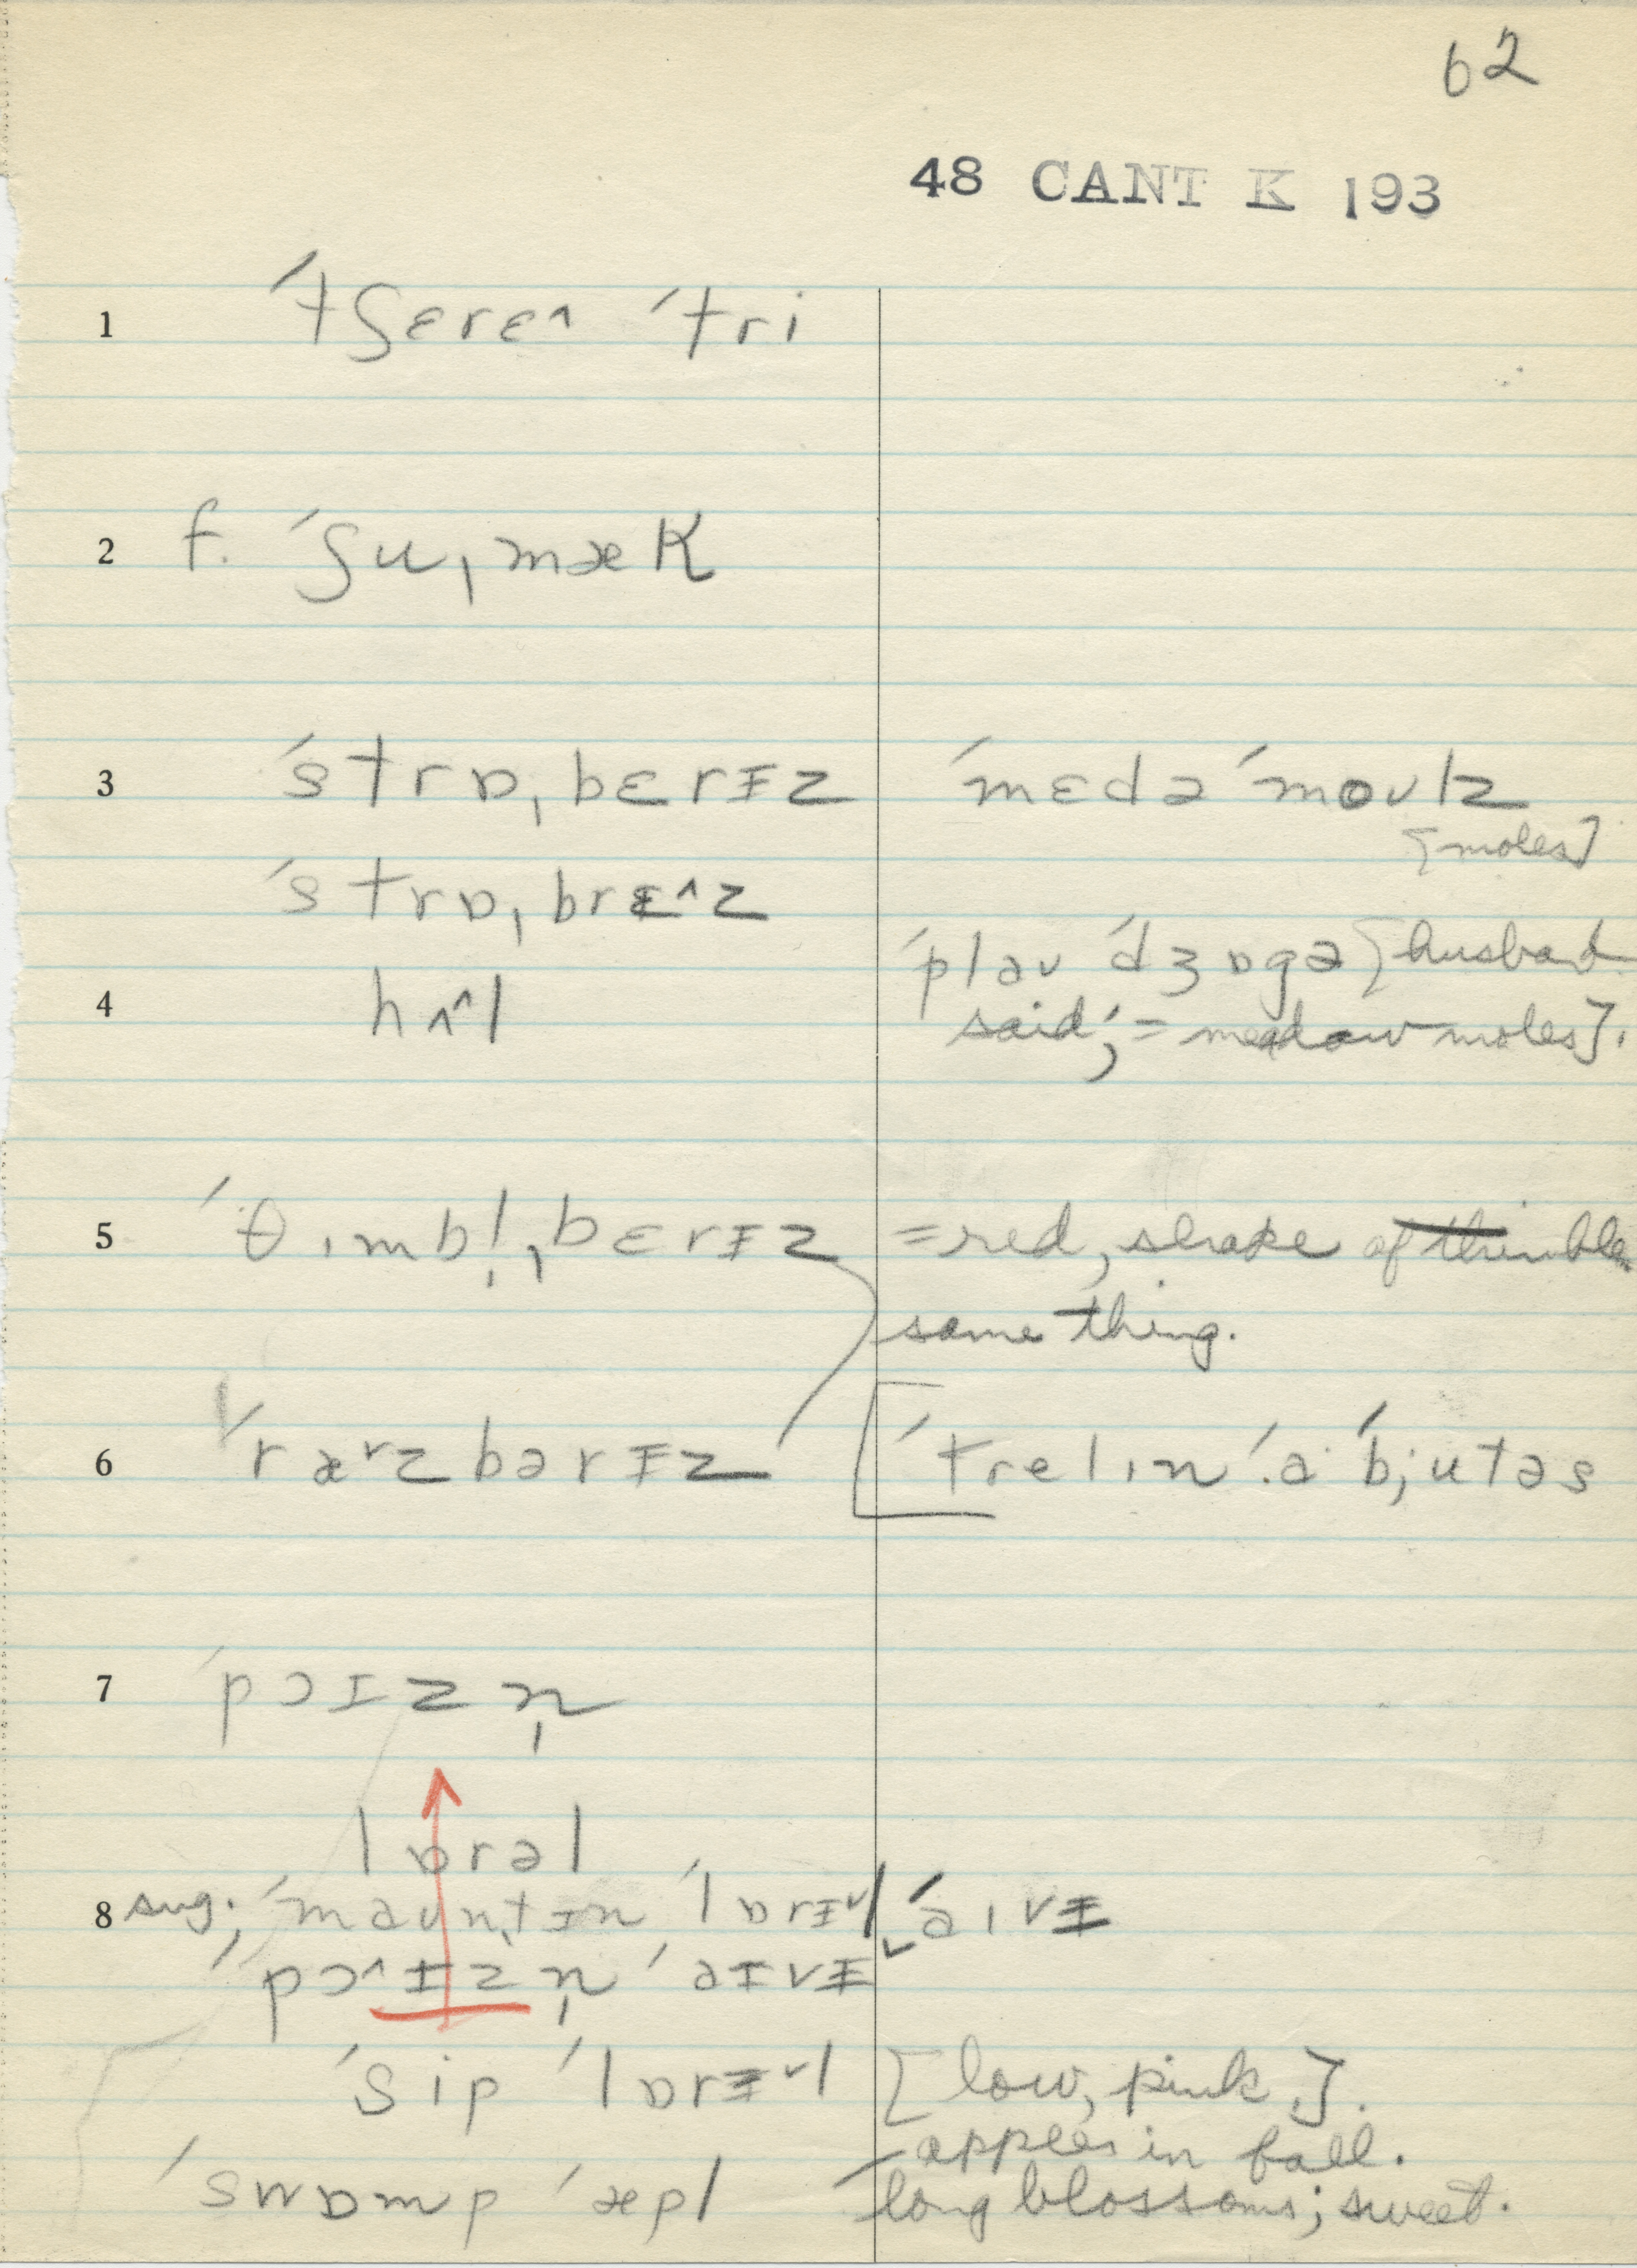 62
48 CANT K 193
1 ˈtʃɛrɛ^ ˈtri
2 f. ˈʃuˌmæK
3 ˈstrɒˌbɛrɪz ˈmɛdə ˈmoʊlz
[moles]
ˈstrɒˌbrɛ^z
ˈplaʊ ˈdʒɒgə [husband
4 hʌ^l
said; = meadow moles].
5 ˈθɪmbl̩ˌbɛrɪz = red, shape of thimble
same thing.
6 ˈræ^rzbərɪz [ˈtrelɪn ə ˈbjutəs
7 ˈpɔɪzn̩
lɒrəl
8 sug. ; ˈmaʊntɪn ˈlɒrɪ˅l ˈaɪvɪ
ˈpɔ^ɪzn̩ ˈaɪvɪ˅
ˈʃip ˈlɒrɪ˅l [low, pink.].
apples in fall.
ˈswɒmp ˈæpl long blossoms; sweet.